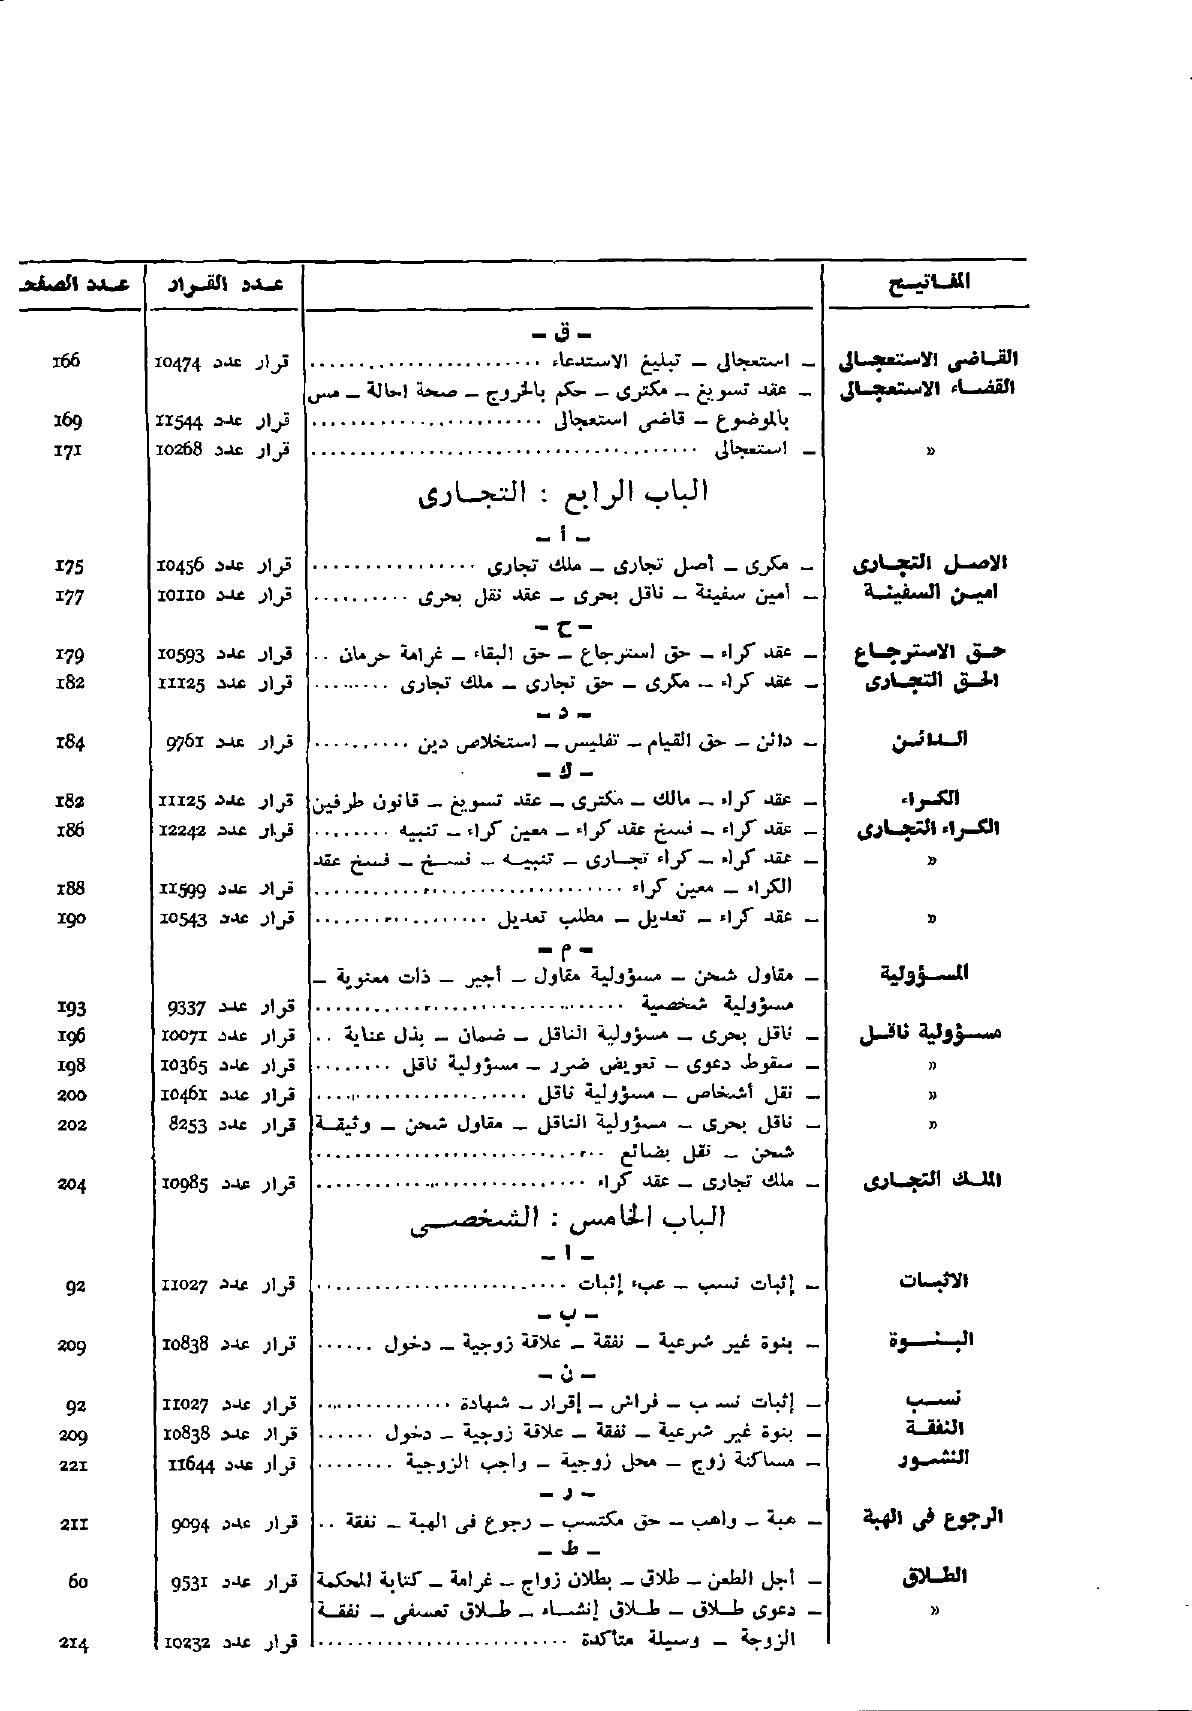 المفاتيح عدد القرار عدد الصفحـ
– ق –
القاضى الاستعجالى – استعجالى – تبليغ الاستدعاء ........................ قرار عدد 10474 166
القضاء الاستعجالى – عقد تسويغ – مكترى – حكم بالخروج – صحة احالة – مس
بالموضوع – قاضى استعجالى ........................ قرار عدد 11544 169
» – استعجالى ........................................ قرار عدد 10268 171
الباب الرابع : التجارى
– أ –
الاصل التجارى – مكرى – أصل تجارى – ملك تجارى ................. قرار عدد 10456 175
امين السفينة – أمين سفينة – ناقل بحرى – عقد نقل بحرى .......... قرار عدد 10110 177
– ح –
حق الاسترجاع – عقد كراء – حق استرجاع – حق البقاء – غرامة حرمان .. قرار عدد 10593 179
الحق التجارى – عقد كراء – مكرى – حق تجارى – ملك تجارى ......... قرار عدد 11125 182
– د –
الدائن – دائن – حق القيام – تفليس – استخلاص دين .......... قرار عدد 9761 184
– ك –
الكراء – عقد كراء – مالك – مكترى – عقد تسويغ – قانون طرفين قرار عدد 11125 182
الكراء التجارى – عقد كراء – فسخ عقد كراء – معين كراء – تنبيه ........ قرار عدد 12242 186
» – عقد كراء – كراء تجارى – تنبيه – فسخ – فسخ عقد
الكراء – معين كراء ................................ قرار عدد 11599 188
» – عقد كراء – تعديل – مطلب تعديل .................. قرار عدد 10543 190
– م –
المسؤولية – مقاول شحن – مسؤولية مقاول – أجير – ذات معنوية –
مسؤولية شخصية ................................ قرار عدد 9337 193
مسؤولية ناقل – ناقل بحرى – مسؤولية الناقل – ضمان – بذل عناية .. قرار عدد 10071 196
» – سقوط دعوى – تعويض ضرر – مسؤولية ناقل ........ قرار عدد 10365 198
» – نقل أشخاص – مسؤولية ناقل ...................... قرار عدد 10461 200
» – ناقل بحرى – مسؤولية الناقل – مقاول شحن – وثيقة قرار عدد 8253 202
شحن – نقل بضائع ..............................
الملك التجارى – ملك تجارى – عقد كراء ............................ قرار عدد 10985 204
الباب الخامس : الشخصى
– ا –
الاثبات – إثبات نسب – عبء إثبات .......................... قرار عدد 11027 92
– ب –
البنوة – بنوة غير شرعية – نفقة – علاقة زوجية – دخول ...... قرار عدد 10838 209
– ن –
نسب – إثبات نسب – فراش – إقرار – شهادة .............. قرار عدد 11027 92
النفقة – بنوة غير شرعية – نفقة – علاقة زوجية – دخول ...... قرار عدد 10838 209
النشوز – مساكنة زوج – محل زوجية – واجب الزوجية ........ قرار عدد 11644 221
– ر –
الرجوع فى الهبة – هبة – واهب – حق مكتسب – رجوع فى الهبة – نفقة .. قرار عدد 9094 211
– ط –
الطلاق – أجل الطعن – طلاق – بطلان زواج – غرامة – كتابة المحكمة قرار عدد 9531 60
» – دعوى طلاق – طلاق إنشاء – طلاق تعسفى – نفقة
الزوجة – وسيلة متأكدة .......................... قرار عدد 10232 214